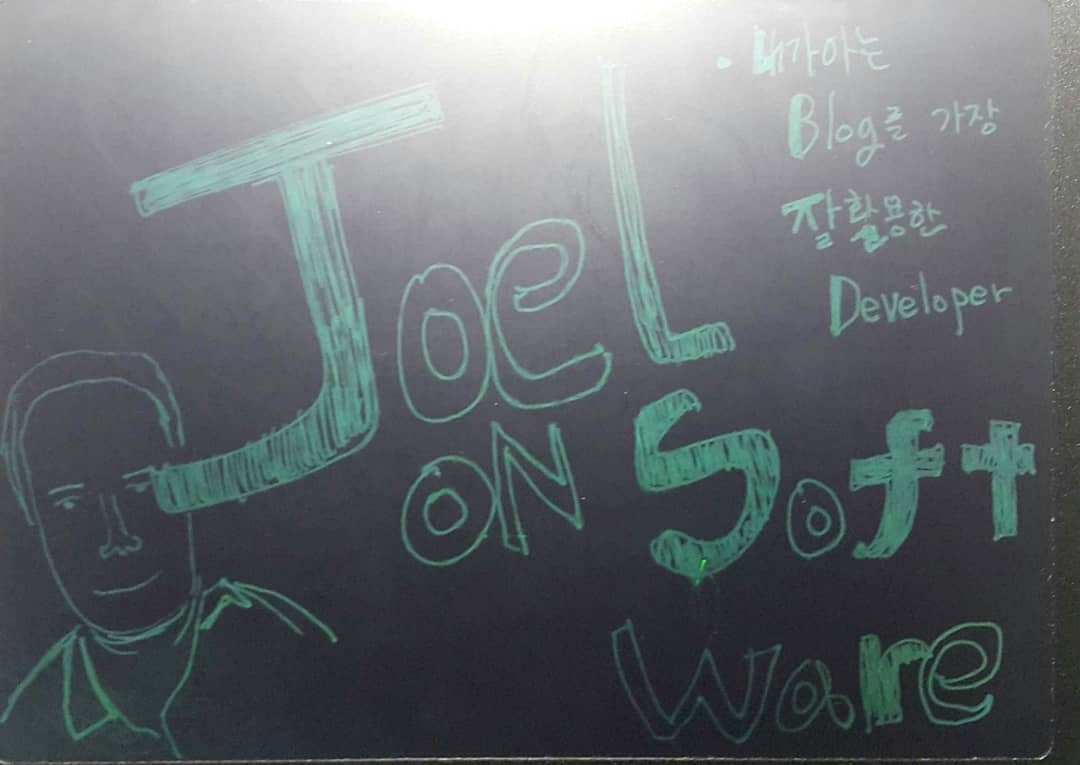 JoeL
ON Soft
Ware
• 내가아는
Blog를 가장
잘활용한
Developer